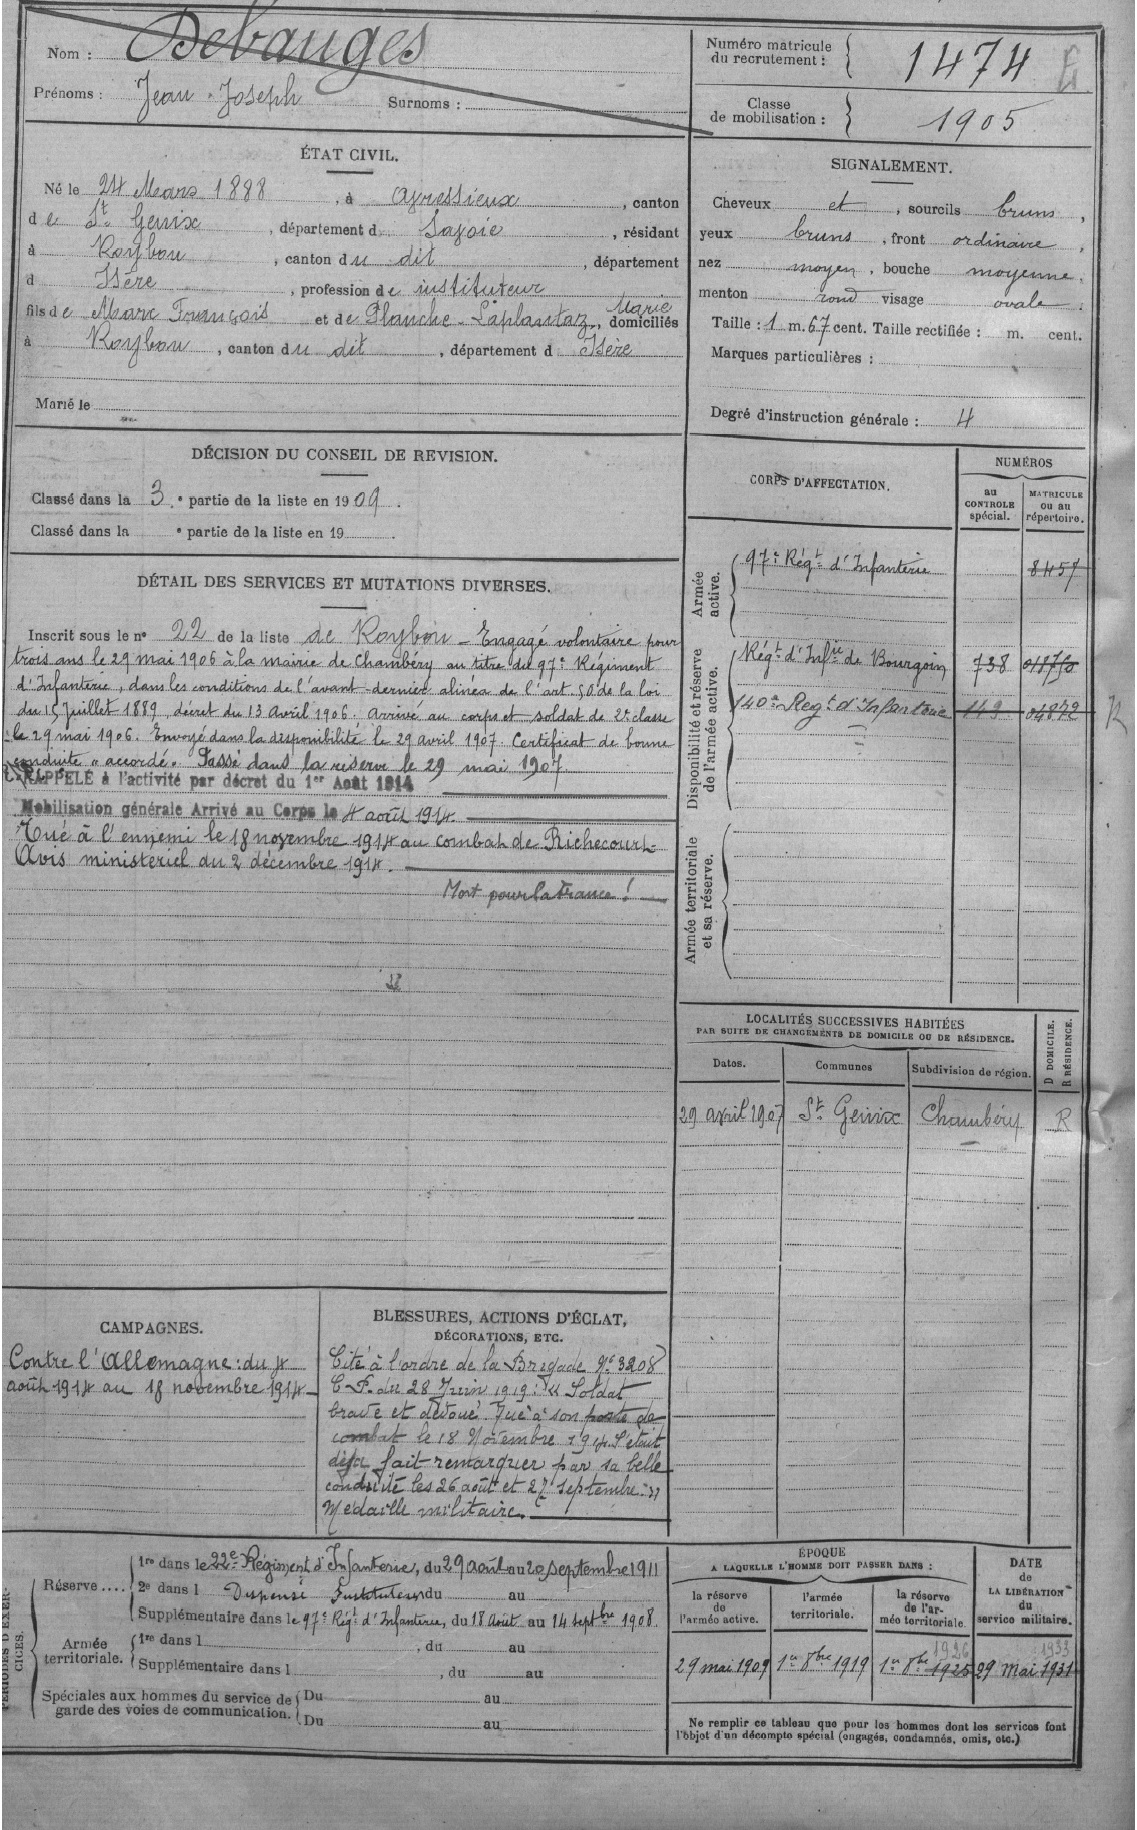 Nom : Débauges
Prénoms : Jean Joseph Surnoms :
Numéro matricule
du recrutement : 1474
Classe
de mobilisation : 1905
ÉTAT CIVIL.
Né le 24 Mars 1888, à Ayressieux, canton
de St Genix, département d Savoie, résidant
à Roybon, canton du dit, département
d Isère, profession de instituteur
fils de Marc François et de Planche-Laplantaz, Marie domiciliés
à Roybon, canton du dit, département d Isère
Marié le
SIGNALEMENT.
Cheveux et, sourcils bruns,
yeux bruns, front ordinaire,
nez moyen, bouche moyenne,
menton rond visage ovale.
Taille : 1 m. 67 cent. Taille rectifiée : m. cent.
Marques particulières :
Degré d'instruction générale : 4
DÉCISION DU CONSEIL DE REVISION.
Classé dans la 3.e partie de la liste en 1909.
Classé dans la e partie de la liste en 19
DÉTAIL DES SERVICES ET MUTATIONS DIVERSES.
Inscrit sous le no 22 de la liste de Roybon - Engagé volontaire pour
trois ans le 29 mai 1906 à la mairie de Chambéry au titre du 97e Régiment
d'Infanterie, dans les conditions de l'avant-dernier alinéa de l'art. 50 de la loi
du 15 Juillet 1889, décret du 13 Avril 1906, Arrivé au corps et soldat de 2e classe
le 29 mai 1906. Envoyé dans la disponibilité le 29 avril 1907. Certificat de bonne
conduite "accordé". Passé dans la réserve le 29 mai 1907.
RAPPELÉ à l'activité par décret du 1er Août 1914
Mobilisation générale Arrivé au Corps le 4 août 1914.
Tué à l'ennemi le 18 novembre 1914 au combat de Richecourt
Avis ministériel du 2 décembre 1914.
Mort pour la France !
CORPS D'AFFECTATION.
NUMÉROS
au
CONTROLE
spécial.
MATRICULE
ou au
répertoire.
Armée
active.
97e Régt d'Infanterie 8457
Disponibilité et réserve
de l'armée active.
Régt d'Infie de Bourgoin 738
140e Régt d'Infanterie 149 04872 R
Armée territoriale
et sa réserve.
LOCALITÉS SUCCESSIVES HABITÉES
PAR SUITE DE CHANGEMENTS DE DOMICILE OU DE RÉSIDENCE.
Dates. Communes Subdivision de région. D DOMICILE. R RÉSIDENCE.
29 avril 1907 St Genix Chambéry R
CAMPAGNES.
Contre l'Allemagne : du 4
août 1914 au 18 novembre 1914
BLESSURES, ACTIONS D'ÉCLAT,
DÉCORATIONS, ETC.
Cité à l'ordre de la Brigade No 3208
C P. du 28 Juin 1919 : "Soldat
brave et dévoué. Tué à son poste de
combat le 18 Novembre 1914. S'était
déjà fait remarquer par sa belle
conduite les 26 août et 27 septembre."
Médaille militaire.
PÉRIODES D'EXERCICES.
Réserve ....
1re dans le 22e Régiment d'Infanterie, du 29 août au 20 septembre 1911
2e dans l Dispensé Instituteur du au
Supplémentaire dans le 97e Régt d'Infanterie, du 18 Août au 14 septbre 1908.
Armée
territoriale.
1re dans l , du au
Supplémentaire dans l , du au
Spéciales aux hommes du service de
garde des voies de communication.
Du au
Du au
ÉPOQUE
A LAQUELLE L'HOMME DOIT PASSER DANS :
la réserve
de l'armée active.
l'armée
territoriale.
la réserve
de l'ar-
mée territoriale.
DATE
de
LA LIBÉRATION
du
service militaire.
1926 1933
29 mai 1909 1er 8bre 1919 1er 8bre 1925 29 mai 1931
Ne remplir ce tableau que pour les hommes dont les services font
l'objet d'un décompte spécial (engagés, condamnés, omis, etc.)